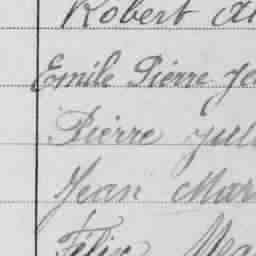 Robert Al
Emile Pierre Je
Pierre Jul
Jean Mar
Félix Ma